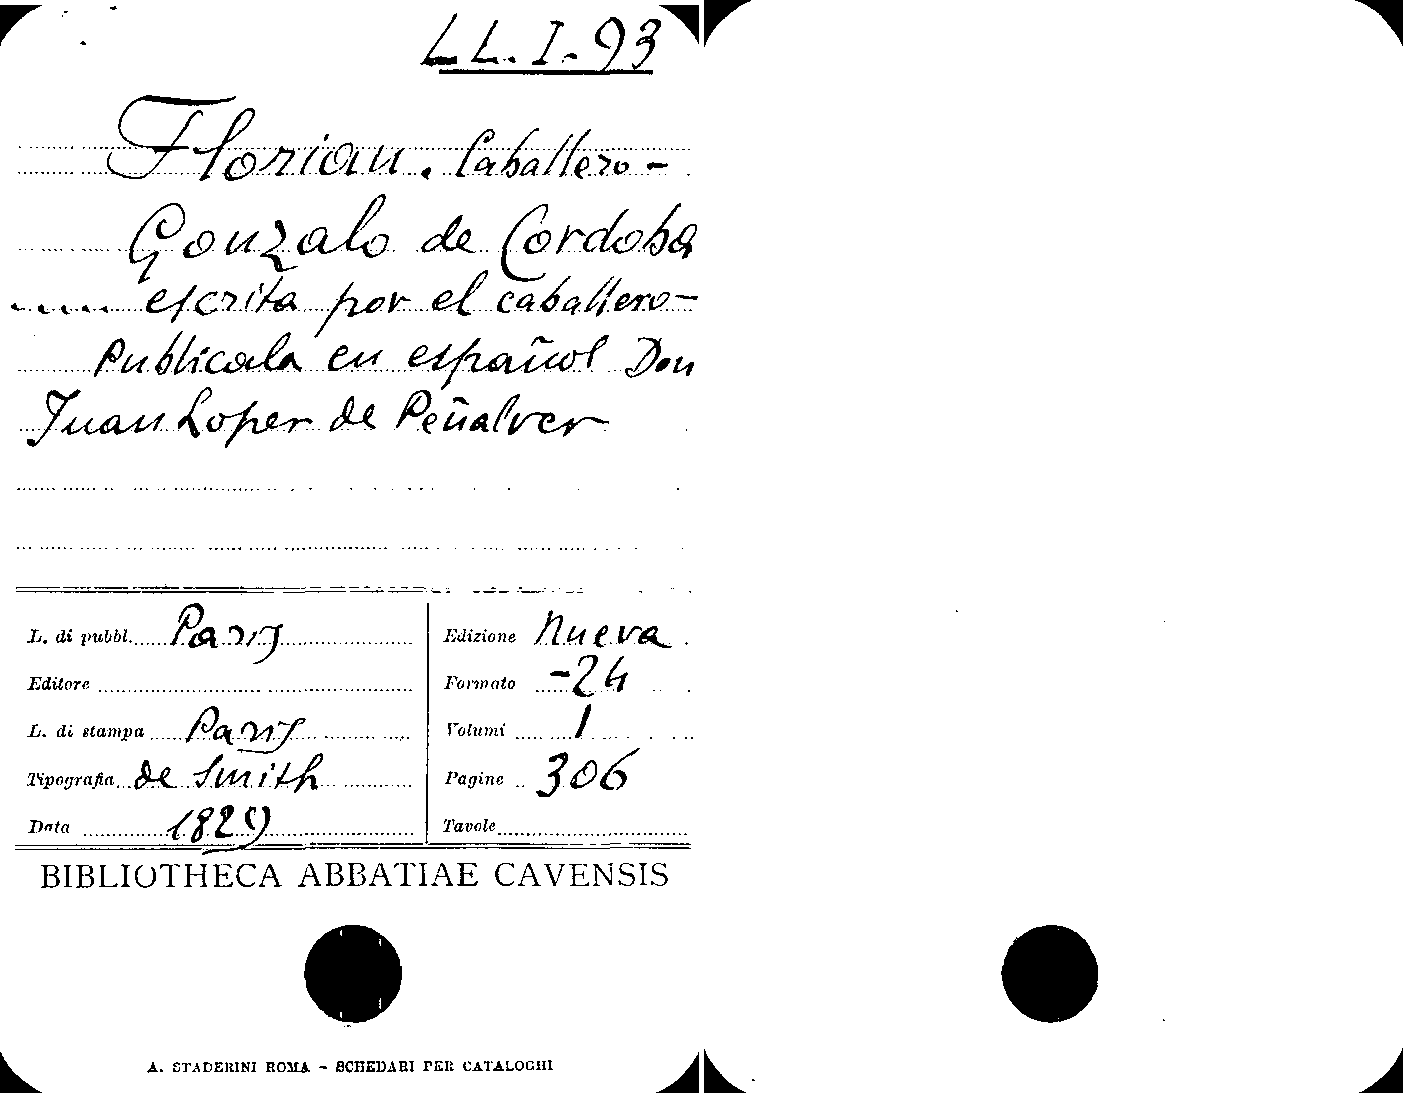 LL. I. 93
Florian. Caballero -
Gonzalo de Cordoba
..... escrita por el caballero -
Publicala en español Don
Juan Loper de Peñalver
L. di pubbl. Parij
Edizione Nueva
Editore
Formato -24
L. di stampa Parij
Volumi 1
Tipografia de Smith
Pagine 306
Data 1829
Tavole
BIBLIOTHECA ABBATIAE CAVENSIS
A. STADERINI ROMA - SCHEDARI PER CATALOGHI